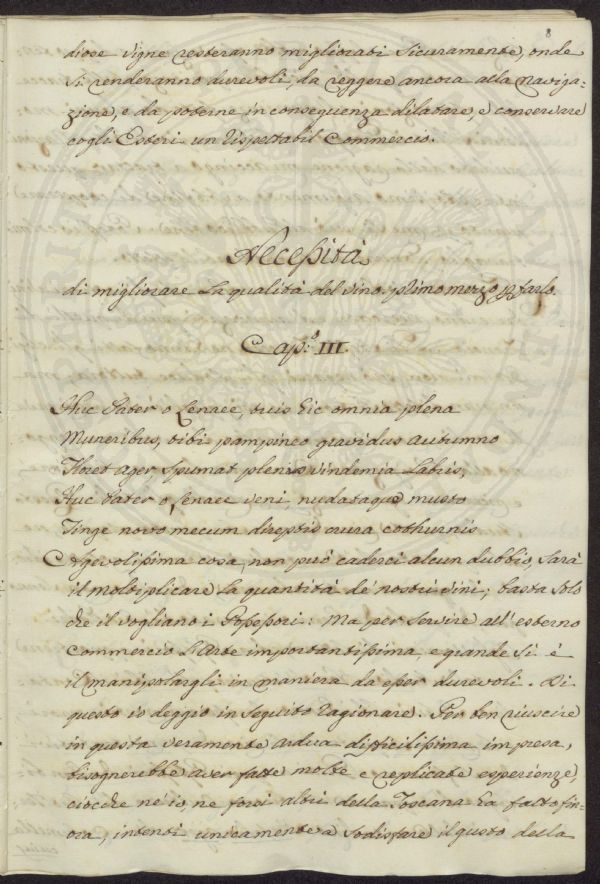 8
diose vigne resteranno migliorati sicuramente, onde
si renderanno durevoli, da reggere ancora alla naviga-
zione, e da poterne in conseguenza dilatare, e conservare
cogli Esteri un rispettabil Commercio.
Necessità
di migliorare la qualità del vino, primo mezzo p farlo.
Cap.o III.
Huc Pater o Lenaee, tuis hic omnia plena
Muneribus, tibi pampineo gravidus autumno
Floret ager, spumat plenis vindemia Labris,
Huc Pater o Lenaee veni, nudataque musto
Tinge novo mecum direptis crura cothurnis
Agevolissima cosa, non può caderci alcun dubbio, sarà
il moltiplicare la quantità de' nostri vini; basta solo
che il vogliano i Possessori: Ma per servire all' esterno
Commercio l'Arte importantissima, e grande si è
il manipolargli in maniera da esser durevoli. Di
questo io deggio in seguito ragionare. Per ben riuscire
in questa veramente ardua difficilissima impresa,
bisognerebbe aver fatte molte e replicate esperienze,
ciocche nè io, ne forsi altri della Toscana ha fatto fin-
ora, intenti unicamente a sodisfare il gusto della